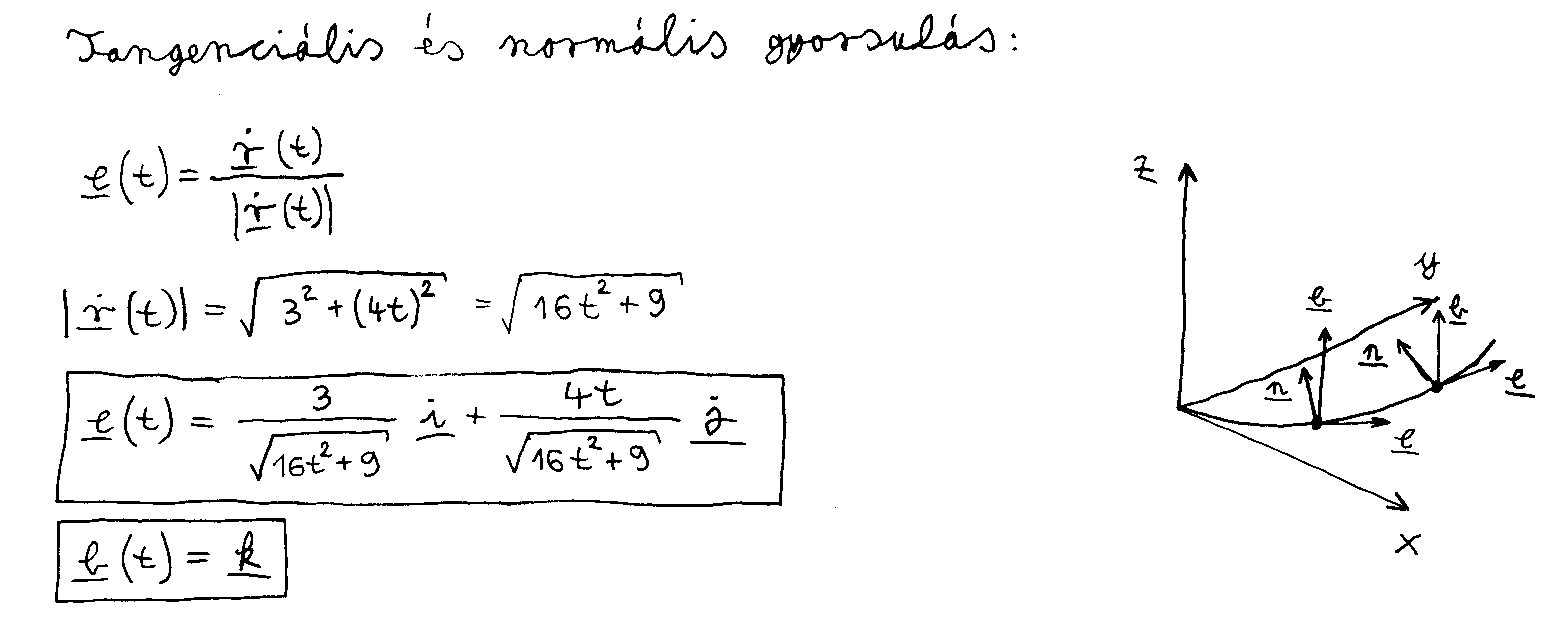 Tangenciális és normális gyorsulás:
e(t) = ṙ(t) / |ṙ(t)|
|ṙ(t)| = √(3² + (4t)²) = √(16t² + 9)
e(t) = 3 / √(16t² + 9) i + 4t / √(16t² + 9) j
b(t) = k
z
y
b
b
n
n
e
e
x